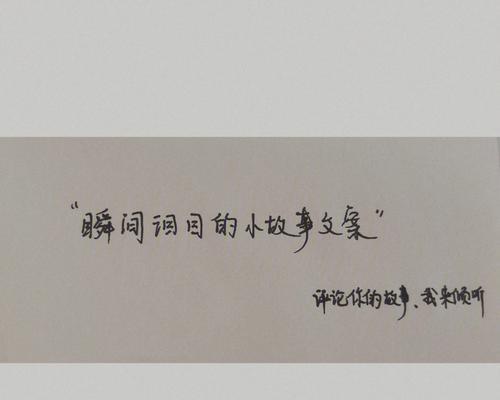 “瞬间泪目的小故事文案”
评论你的故事、我来倾听